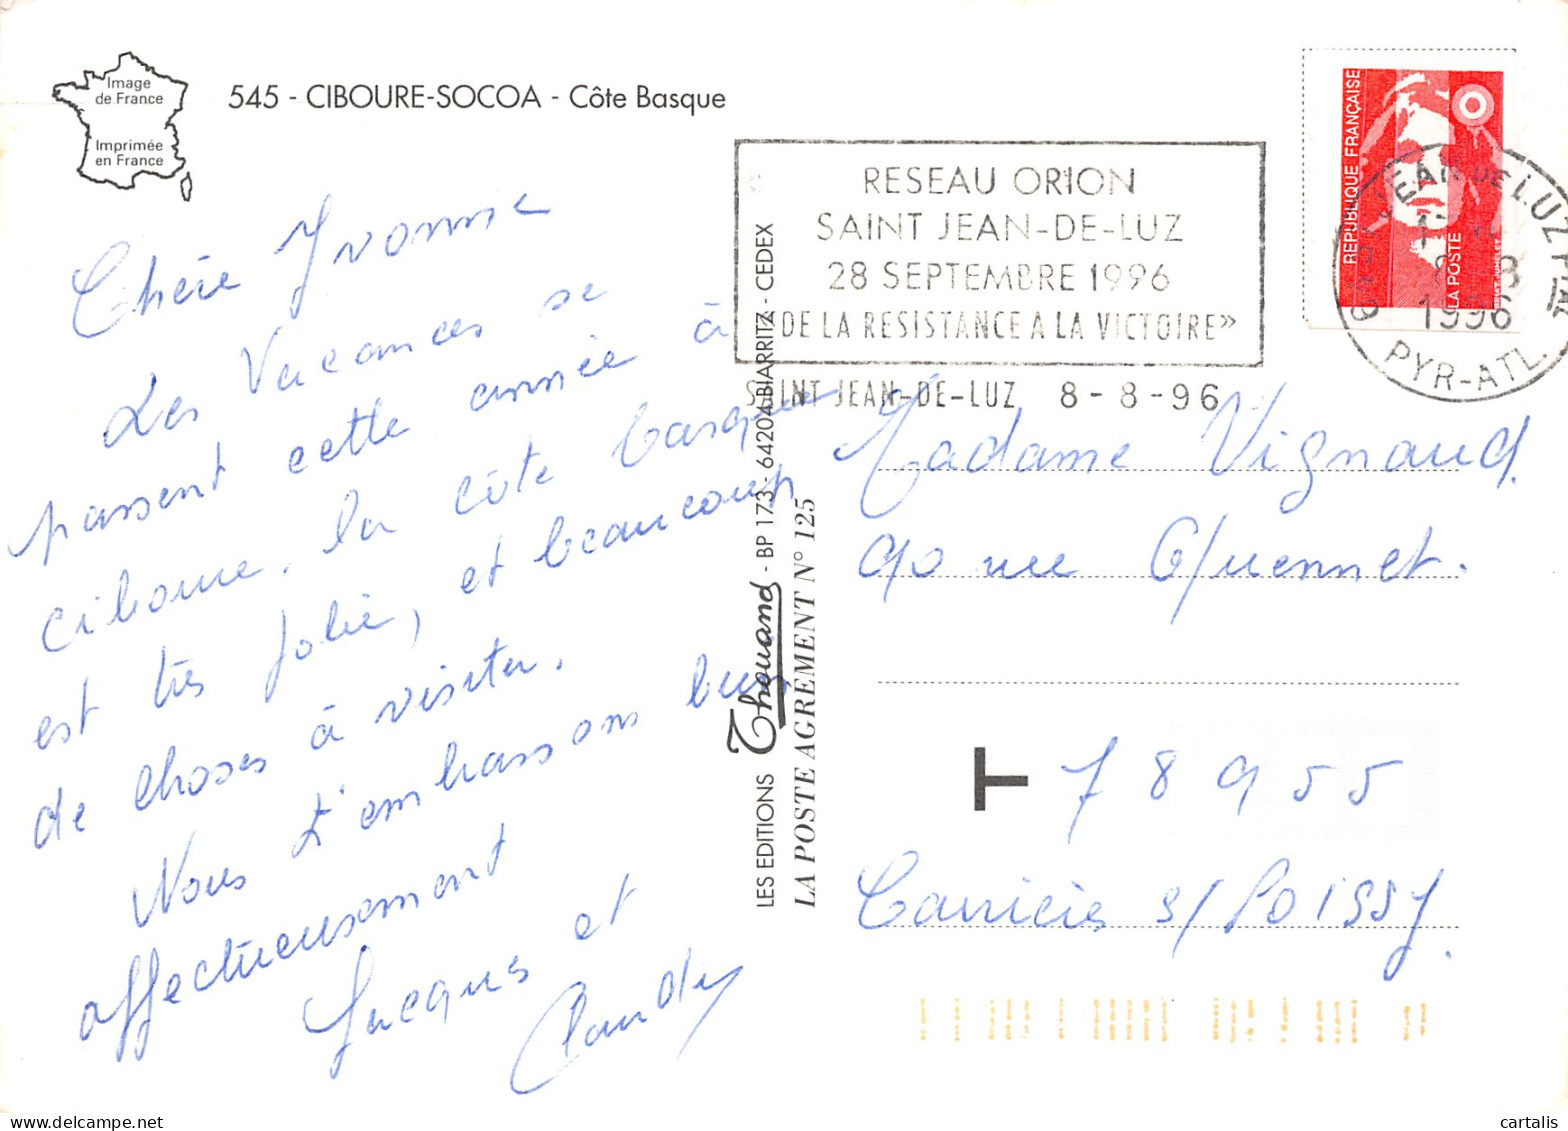 Image
de France
Imprimée
en France
545 - CIBOURE-SOCOA - Côte Basque
Chère Yvonne
Les Vacances se
passent cette année à
Ciboure, la côte basque
est très jolie, et beaucoup
de choses à visiter.
Nous t'embrassons bien
affectueusement
Jacques et
Claudy
LES EDITIONS Thouand - BP 173 - 64204 BIARRITZ - CEDEX
LA POSTE AGREMENT N° 125
RESEAU ORION
SAINT JEAN-DE-LUZ
28 SEPTEMBRE 1996
"DE LA RESISTANCE A LA VICTOIRE"
SAINT JEAN-DE-LUZ 8-8-96
REPUBLIQUE FRANÇAISE
LA POSTE
JEAN DE LUZ
1996
PYR-ATL.
Madame Vignaud.
90 rue Guennet.
T 78955
Carrières s/Poissy.
cartalis